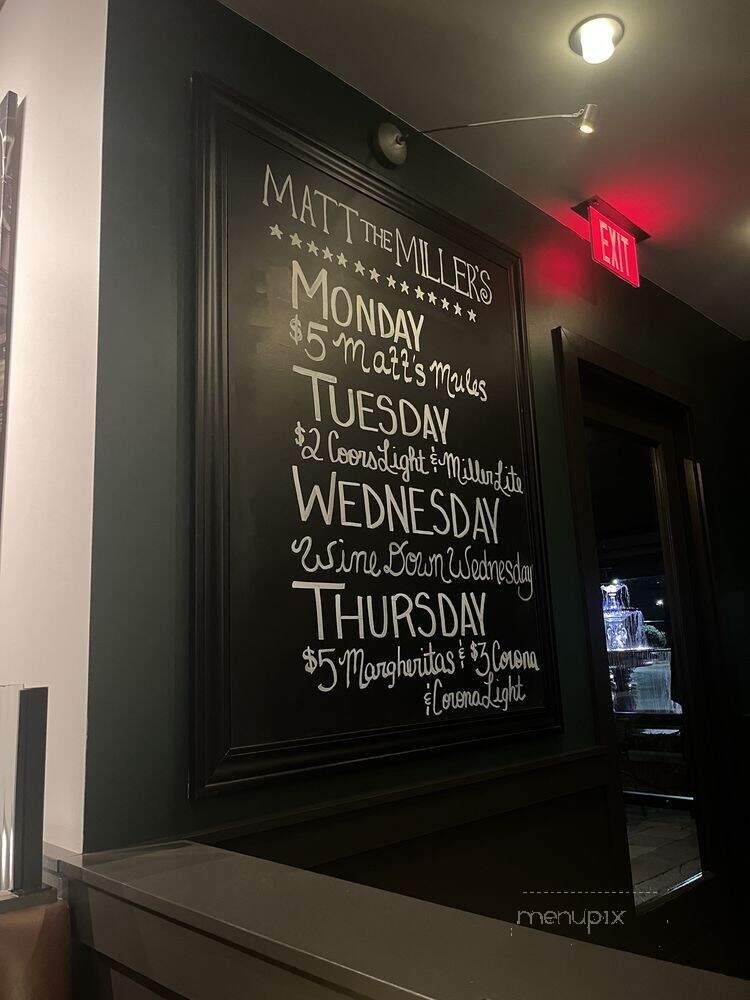 MATT THE MILLER'S
MONDAY
$5 Matt's Mules
TUESDAY
$2 Coors Light & Miller Lite
WEDNESDAY
Wine Down Wednesday
THURSDAY
$5 Margheritas & $3 Corona
& Corona Light
EXIT
menupix